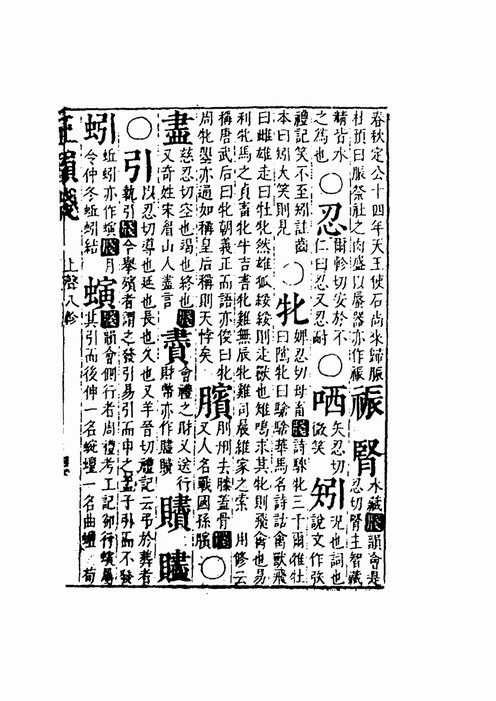 春秋定公十四年天王使石尚來歸脤
杜預曰脤祭社之肉盛以蜃器亦作祳
祳
腎
水藏牋韻會是
忍切腎主智藏
精皆水
之爲也
○忍
爾軫切安於不
仁曰忍又忍耐
○哂
矢忍切
微笑
矧
況也詞也
說文作弞
禮記笑不至矧註齒
本曰矧大笑則見
○牝
婢忍切母畜牋詩騋牝三千爾雅牡
曰騭牝曰騇騇華馬名詩詁禽獸飛
曰雌雄走曰牡牝然雄狐綏綏則走獸也雉鳴求其牝則飛禽也易
利牝馬之貞畜牝牛吉書牝雞無辰牝雞司晨維家之索 用修云
稱唐武后曰牝朝義正而語亦俊曰牝
周牝曌亦通如稱皇后稱則天悖矣
臏
刖刑去膝蓋骨牋
又人名戰國孫臏
○
盡
慈忍切空也竭也終也牋
又奇姓宋眉山人盡言
賮
會禮之財又送行
財幣亦作贐
贐
○引
以忍切導也延也長也久也又羊晉切禮記云弔於葬者
執引牋今舉殯者謂之發引易引而申之孟子引而不發
蚓
蚯蚓亦作螾牋月
令仲冬蚯蚓結
螾
牋韻會側行者周禮考工記卻行螾屬
其引而後伸一名蜿蟺一名曲蟺 荀
正韻牋
上聲 八軫